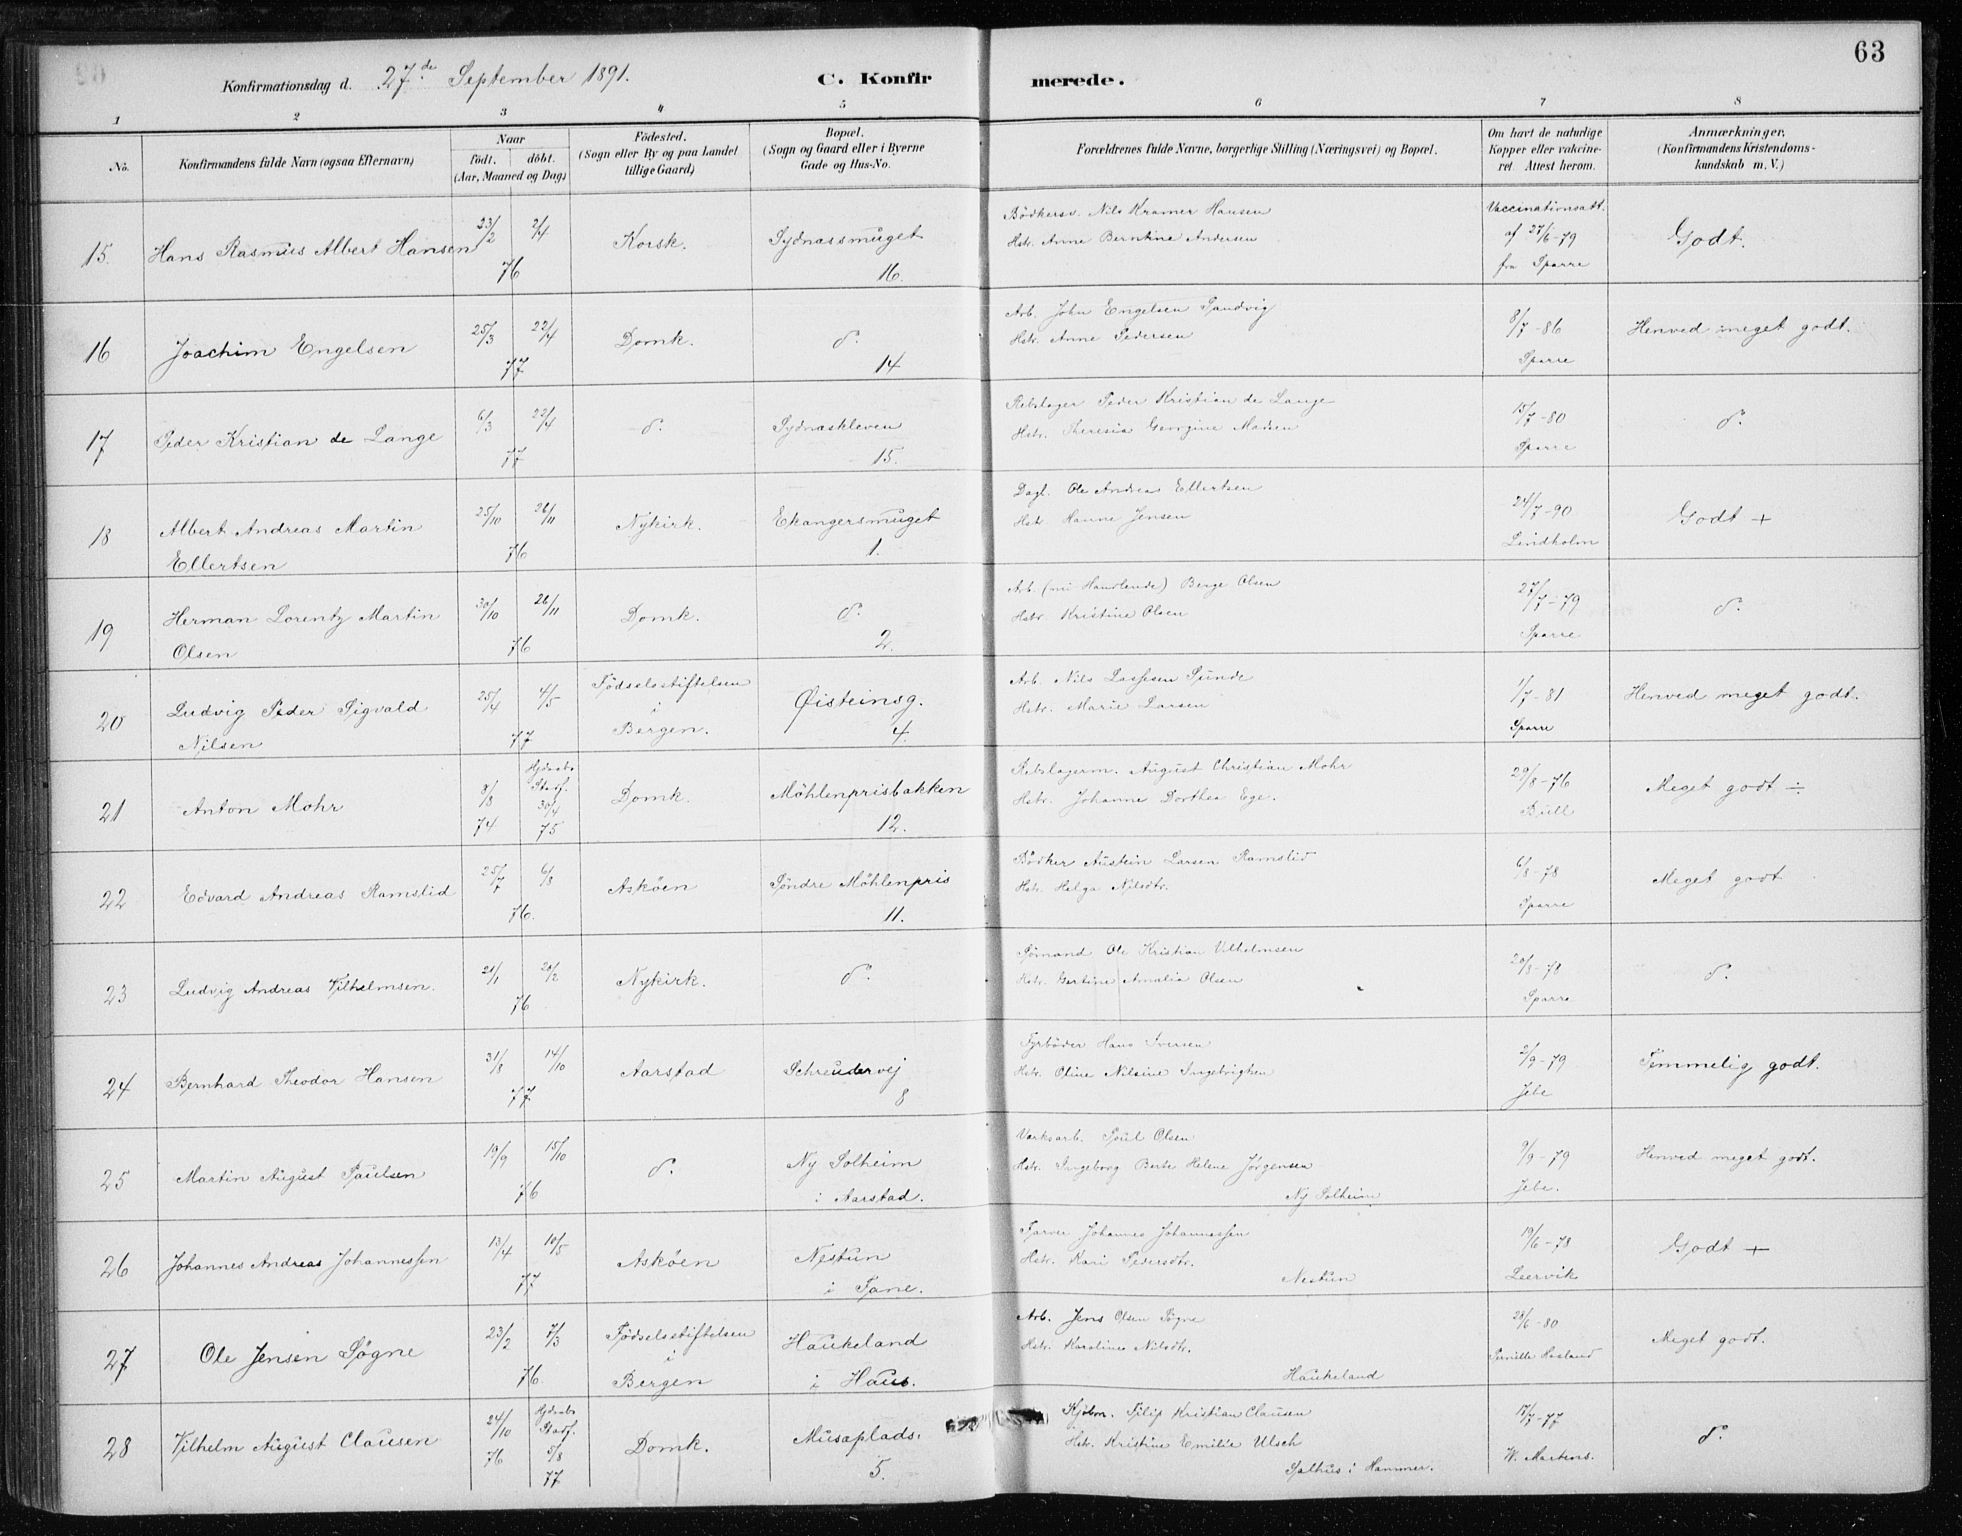 63
Konfirmationsdag d. 27de September 1891.
C. Konfirmerede.
1 2 3 4 5 6 7 8
No.
Konfirmandens fulde Navn (ogsaa Efternavn)
Naar
födt. döbt.
(Aar, Maaned og Dag)
Födested.
(Sogn eller By og paa Landet
tillige Gaard)
Bopæl.
(Sogn og Gaard eller i Byerne
Gade og Hus-No.
Forældrenes fulde Navne, borgerlige Stilling (Næringsvei) og Bopæl.
Om havt de naturlige
Kopper eller vakcine-
ret. Attest herom.
Anmærkninger.
(Konfirmandens Kristendoms-
kundskab m. V.)
15. Hans Rasmus Albert Hansen 23/2 2/4 76 Korsk. Sydnæssmuget 16.
Bödkersv. Nils Kramer Hansen
Hstr. Anne Berntine Andersen
Vaccinationsatt.
af 27/6-79
fra Sparre
Godt.
16 Joachim Engelsen 25/3 22/4 77 Domk. d°. 14
Arb. John Engelsen Sandvig
Hstr. Anne Pedersen
8/7-86
Sparre
Henved meget godt.
17 Peder Kristian de Lange 6/3 22/4 77 d°. Sydnæskleven 15.
Rebslager Peder Kristian de Lange
Hstr. Theresia Georgine Madsen
15/7-80
Sparre
d°.
18 Albert Andreas Martin
Ellertsen 25/10 26/11 76 Nykirk. Ekangersmuget 1.
Dagl. Ole Andreas Ellertsen
Hstr. Hanne Jensen
24/7-90
Lindholm
Godt +
19 Herman Lorentz Martin
Olsen 30/10 26/11 76 Domk. d°. 2.
Arb. (nu Handlende) Berge Olsen
Hstr. Kristine Olsen
27/7-79
Sparre
d°.
20 Ludvig Peder Sigvald
Nilsen 25/4 4/5 77 Födselsstiftelsen
i
Bergen. Øisteinsg. 4.
Arb. Nils Lassesen Sunde
Hstr. Marie Larsen
1/7-81
Sparre
Henved meget godt.
21 Anton Mohr 8/8 74 Hjdaab. Stadf. 30/4 75 Domk. Möhlenprisbakken 12.
Rebslagerm. August Christian Mohr
Hstr. Johanne Dorthea Ege.
29/8-76
Bull
Meget godt ÷
22 Edvard Andreas Ramslid 25/7 6/8 76. Asköen Söndre Möhlenpris 11.
Bödker Austein Larsen Ramslid
Hstr. Helga Nilsdtr.
6/8-78
Sparre
Meget godt
23 Ludvig Andreas Vilhelmsen. 21/1 20/2 76 Nykirk. d°.
Sömand Ole Kristian Vilhelmsen
Hstr. Gertine Amalia Olsen
20/8-78
Sparre
d°.
24 Bernhard Theodor Hansen 31/8 14/10 77 Aarstad Schreudervej 8
Fyrböder Hans Iversen
Hstr. Oline Nilsine Ingebrigtsen
2/9-79
Jebe
Temmelig godt.
25 Martin August Paulsen 19/9 15/10 76 d°. Ny Solheim
i Aarstad.
Værksarb. Poul Olsen
Hstr. Ingeborg Berte Helene Jörgensen
Ny Solheim
9/9-79
Jebe.
Henved meget godt.
26 Johannes Andreas Johannessen 13/4 10/5 77 Asköen Nestun
i Fane.
Farver Johannes Johannessen
Hstr. Kari Pedersdtr.
Nestun
19/6-78
Leervik
Godt +
27 Ole Jensen Søgne 23/2 7/3 76. Födselsstiftelsen
i
Bergen Haukeland
i Haus.
Arb. Jens Olsen Søgne
Hstr. Karoline Nilsdtr.
Haukeland
28/6-80
Pernille Haaland
Meget godt.
28 Vilhelm August Clausen 24/10 76 Hjdaab. Stadf. 5/8 77 Domk. Musæplads. 5.
Kjöbm. Filip Kristian Clausen
Hstr. Kristine Emilie Ulsch
Salhus i Hammer.
17/7-77
W. Martens.
d°.